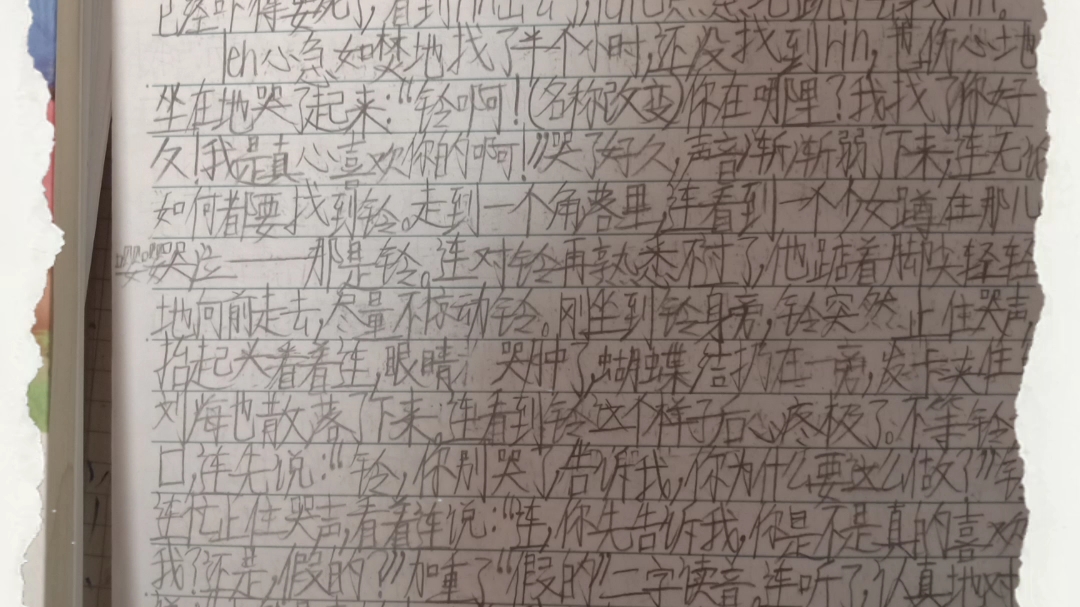 已经吓得要死了,看到rin出去了,len也点急地跑出去找rin。
len心急如焚地找了半个小时,还没找到rin,就伤心地
坐在地哭了起来:“铃啊!(名称改变)你在哪里?我找了你好
久!我是真心喜欢你的啊!”哭了好久,声音渐渐弱了下来,连无论
如何都要找到铃。走到一个角落里,连看到一个少女蹲在那儿
嘤嘤哭泣——那是铃。连对铃再熟悉不过了,他踮着脚尖轻轻
地向前走去,尽量不惊动铃。刚坐到铃身旁,铃突然止住哭声,
抬起头看着连,眼睛哭肿了,蝴蝶结扔在一旁,发卡夹住
刘海也散落了下来。连看到铃这个样子后心疼极了。不等铃
口,连先说:“铃,你别哭了,告诉我,你为什么要这么做?”铃
连忙止住哭声,看着连说:“连,你先告诉我,你是不是真的喜欢
我?还是,假的?”加重了“假的”二字读音。连听了,认真地对